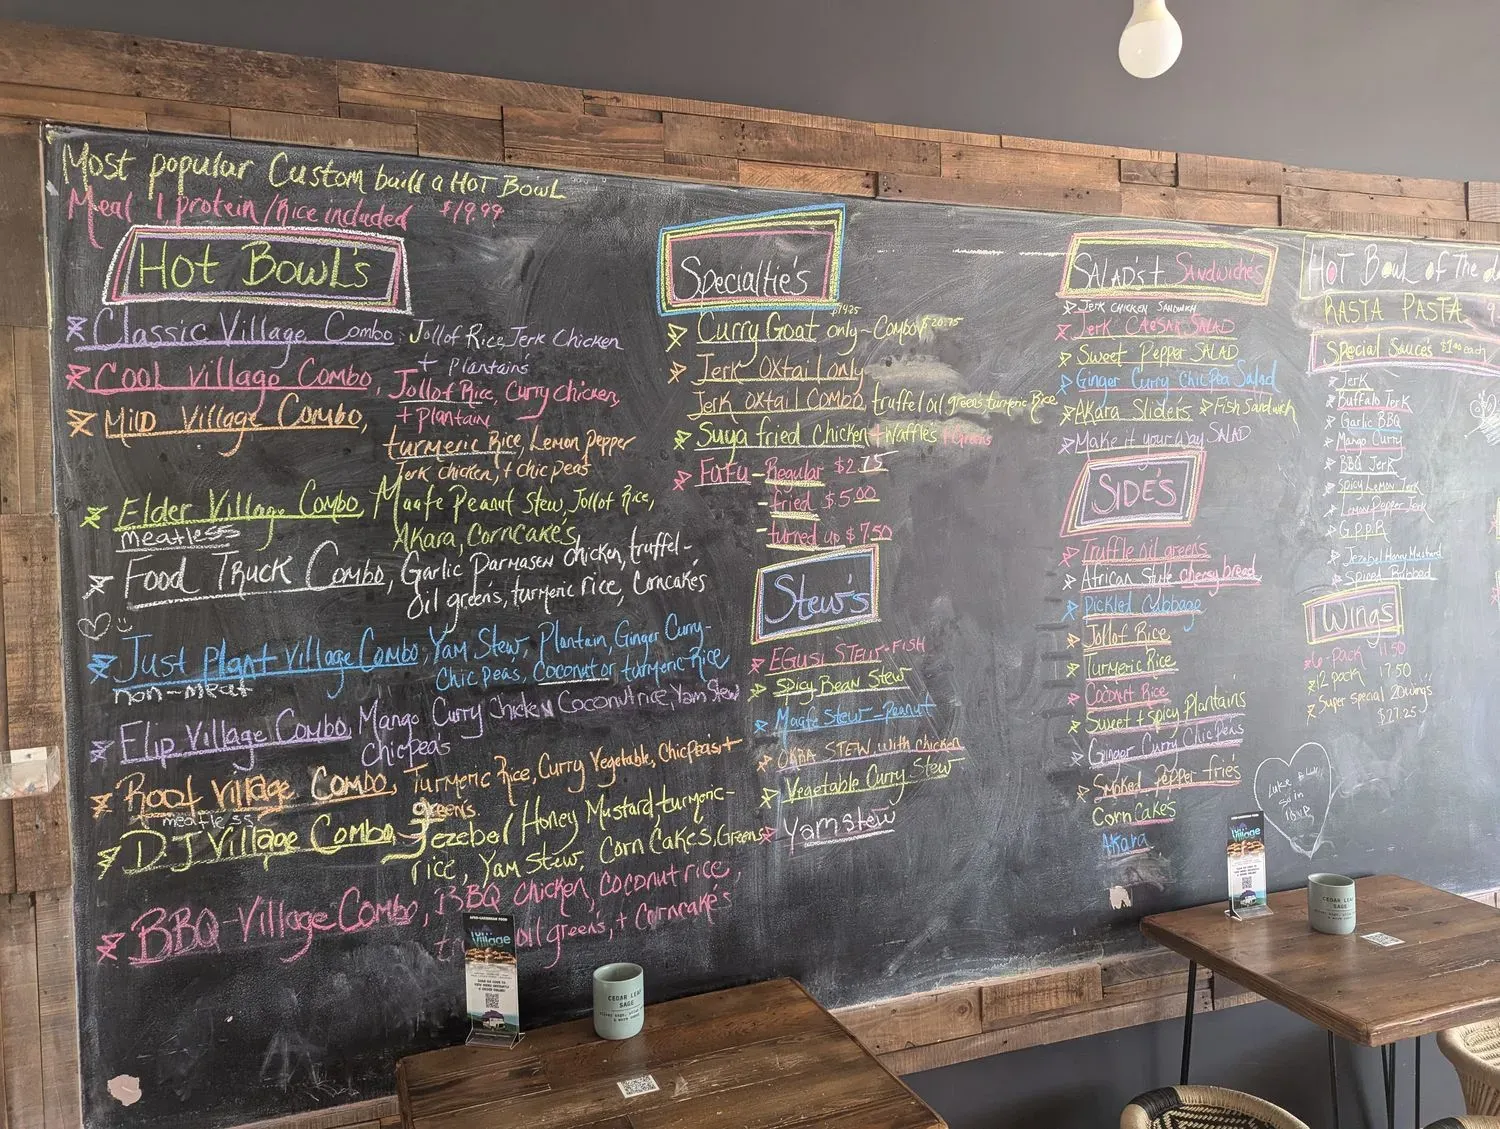 Most popular Custom build a HOT BOWL
Meal 1 protein/Rice included $19.99
HOT BOWL's
Classic Village Combo: Jollof Rice, Jerk Chicken
+ plantain's
COOL Village Combo, Jollof Rice, Curry Chicken,
+ plantain
MILD Village Combo,
turmeric Rice, Lemon pepper
Jerk chicken, + chic peas
Elder Village Combo, Maafe Peanut Stew, Jollof Rice,
meatless
Akara, CornCake's
Food Truck Combo, Garlic Parmasen chicken, truffel-
oil green's, turmeric rice, Corncakes
Just plant Village Combo, Yam Stew, Plantain, Ginger Curry-
Chic peas, Coconut or turmeric Rice
non-meat
Flip Village Combo, Mango Curry Chicken Coconut rice, Yam Stew
Chicpea's
Root Village Combo, Turmeric Rice, Curry Vegetable, Chicpeas +
greens.
meatless
DJ Village Combo, Jezebel Honey Mustard, turmeric-
rice, Yam Stew, Corn Cakes, Greens
BBQ-Village Combo, BBQ Chicken, Coconut rice,
oil green's, + Corncake's
Specialtie's
Curry Goat only - Combo $20.75
Jerk Oxtail only
Jerk OXtail COMBO, truffel oil greens, turmeric Rice
Suya fried Chicken + Waffle's + Greens
FuFu - Regular $2.75
- fried $5.00
- turned up $7.50
Stew's
EGUSI STEW-FISH
Spicy Bean Stew
Maafe Stew - Peanut
OKRA STEW with chicken
Vegetable Curry Stew
Yam stew
SALAD's + Sandwiche's
Jerk CHICKEN SANDWICH
Jerk CAESAR SALAD
Sweet Pepper SALAD
Ginger Curry Chicpea Salad
AKARA Sliders Fish Sandwich
Make it your Way SALAD
SIDE'S
Truffle oil greens
African Style cheesy bread
Pickled Cabbage
Jollof Rice
Turmeric Rice
Coconut Rice
Sweet + Spicy Plantains
Ginger Curry Chic Peas
Smoked Pepper fries
Corn Cakes
Akara
HOT Bowl of The
RASTA PASTA
Special Sauces $1.00 each
Jerk
Buffalo Jerk
Garlic BBQ
Mango Curry
BBQ Jerk
Spicy Lemon Jerk
Lemon Pepper Jerk
G.P.P.R
Jezebel Honey Mustard
Wings
6-pack 11.50
12 pack 17.50
Super Special 20 wings
$27.25
so in
love
AFRO-CARIBBEAN FOOD
Village
Village
CEDAR LEAF
SAGE
CEDAR LEAF
SAGE